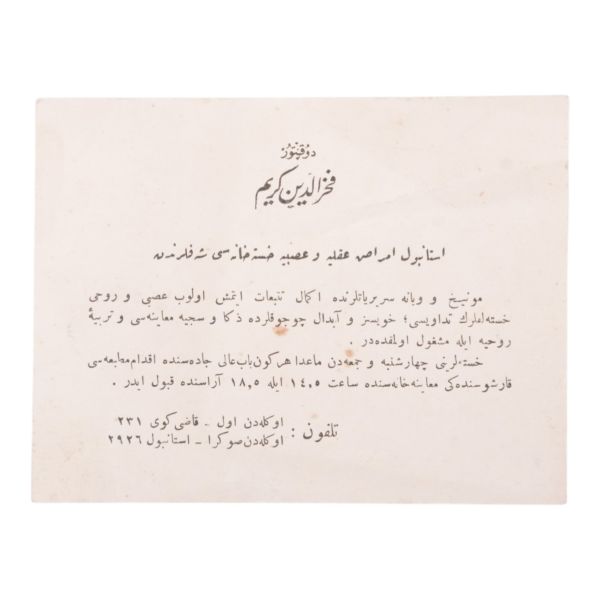 دوقتور
فخرالدین کریم
استانبول امراض عقلیه و عصبیه خسته‌خانه‌سی شفلرندن
مونیخ و ویانه سریریاتلرنده اکمال تتبعات ایتمش اولوب عصبی و روحی
خسته‌لقلرك تداویسی؛ خویسز و آبدال چوجوقلرده ذکا و سجیه معاینه‌سی و تربیهٔ
روحیه ایله مشغول اولمقده‌در .
خسته‌لرینی چهارشنبه و جمعه‌دن ماعدا هرکون باب عالی جاده‌سنده اقدام مطبعه‌سی
قارشوسنده‌کی معاینه‌خانه‌سنده ساعت ١٤،٥ ایله ١٨،٥ آراسنده قبول ایدر .
تلفون : اوکله‌دن اول - قاضی‌کوی ٢٣١
اوکله‌دن صوکرا - استانبول ٢٩٢٦